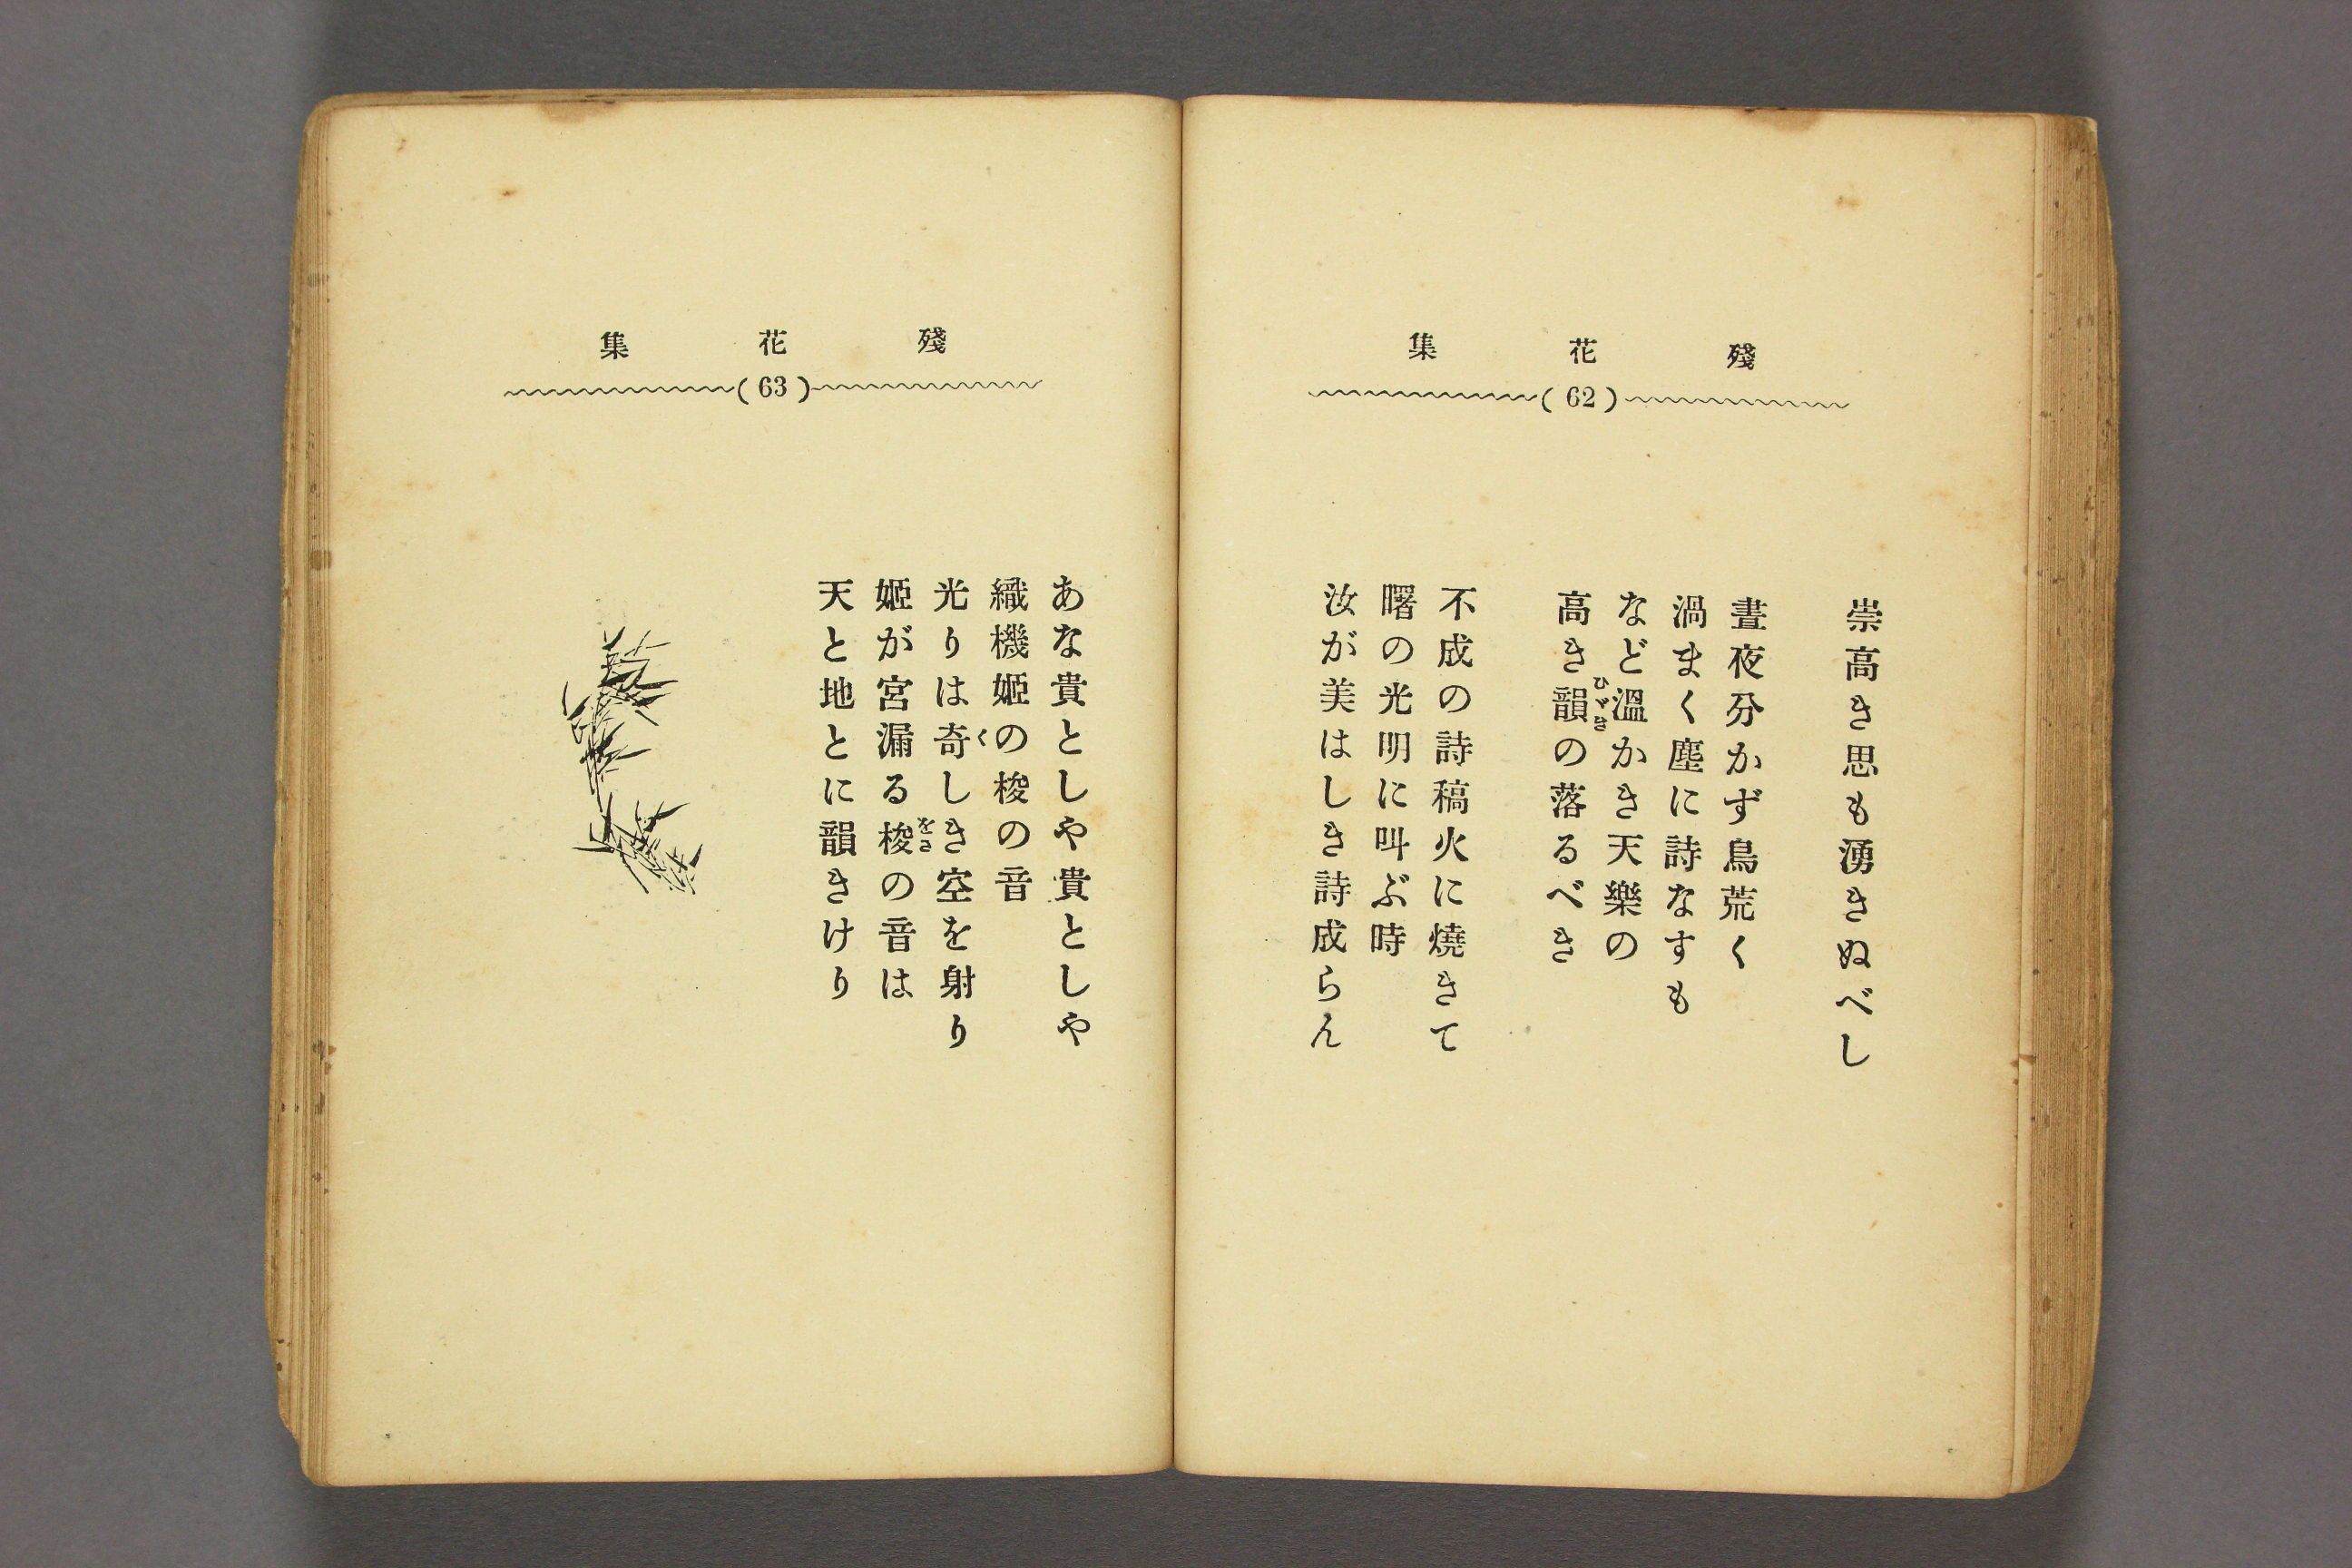 殘花集
(62)
崇高き思も湧きぬべし
晝夜分かず鳥荒く
渦まく塵に詩なすも
など溫かき天樂の
高き韻の落るべき
ひゞき
不成の詩稿火に燒きて
曙の光明に叫ぶ時
汝が美はしき詩成らん
殘花集
(63)
あな貴としや貴としや
織機姬の梭の音
光りは奇しき空を射り
く
姬が宮漏る梭の音は
をさ
天と地とに韻きけり